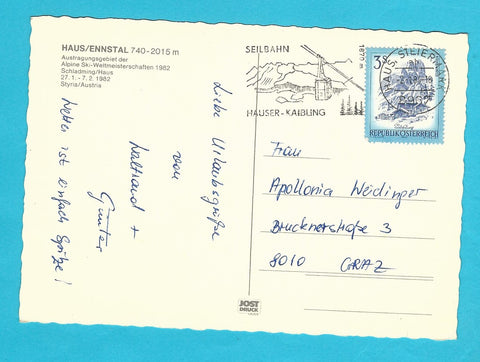 HAUS/ENNSTAL 740-2015 m
Austragungsgebiet der
Alpine Ski-Weltmeisterschaften 1982
Schladming/Haus
27. 1. - 7. 2. 1982
Styria/Austria
SEILBAHN
1870 m
HAUSER-KAIBLING
HAUS, STEIERMARK
3 S
REPUBLIK ÖSTERREICH
Liebe Urlaubsgrüße
von
Waltraud +
Günter
Wetter ist einfach Spitze!
Frau
Apollonia Weidinger
Brucknerstraße 3
8010 GRAZ
JOST
DRUCK